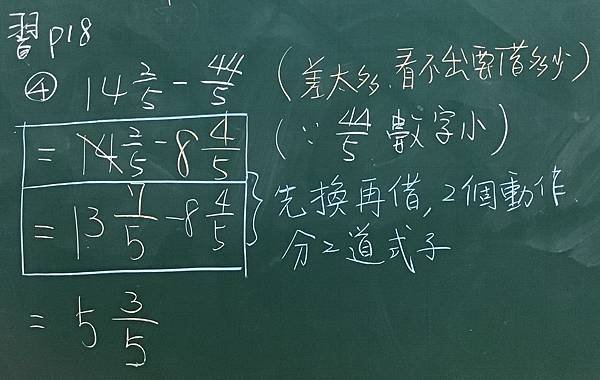 習 p18
④ 14 2/5 - 44/5 (差太多,看不出要借多少)
= 14 2/5 - 8 4/5 (∵ 44/5 數字小)
= 13 7/5 - 8 4/5 } 先換再借, 2個動作.
分2道式子
= 5 3/5